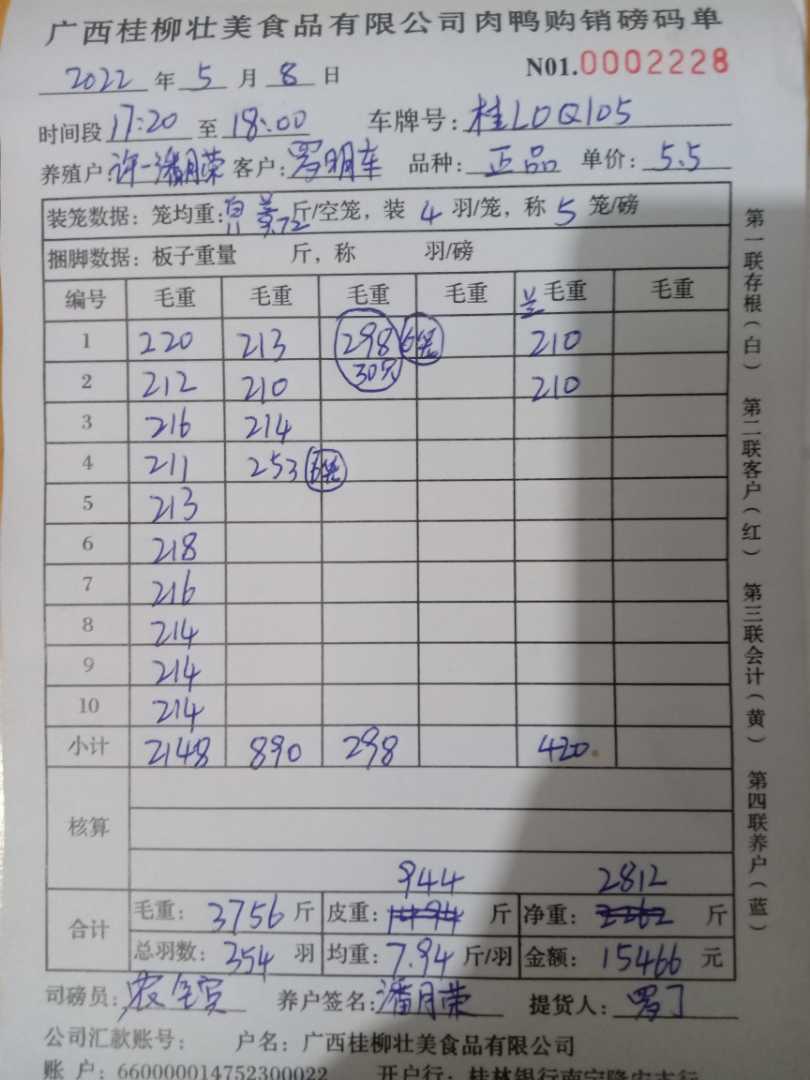 广西桂柳壮美食品有限公司肉鸭购销磅码单
2022年5月8日 N01.0002228
时间段17:20至18:00 车牌号:桂LDQ105
养殖户:许一潘月荣 客户:罗明车 品种:正品 单价:5.5
装笼数据:笼均重: 斤/空笼,装4羽/笼,称5笼/磅
捆脚数据:板子重量 斤,称 羽/磅
编号 毛重 毛重 毛重 毛重 毛重 毛重
1 220 213 298 6笼 210
2 212 210 30只 210
3 216 214
4 211 253
5 213
6 218
7 216
8 214
9 214
10 214
小计 2148 890 298 420
核算
944 2812
合计 毛重:3756斤 皮重:1494斤 净重:2262斤
总羽数:354羽 均重:7.94斤/羽 金额:15466元
司磅员: 养户签名:潘月荣 提货人:罗丁
公司汇款账号: 户名:广西桂柳壮美食品有限公司
账户:660000014752300022 开户行:桂林银行南宁隆安支行
第一联存根(白) 第二联客户(红) 第三联会计(黄) 第四联养户(蓝)